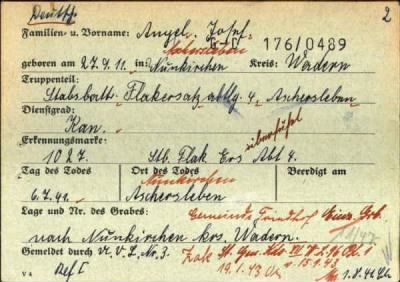 Deutsch. 2
Familien- u. Vorname: Angel, Josef
176/0489
geboren am 27.9.11. in: Nunkirchen Kreis: Wadern
Truppenteil:
Stabsbatt. Flakersatzabtlg. 4, Aschersleben
Dienstgrad:
Kan.
Erkennungsmarke: überführt
1027. Stb. Flak Ers Abt 4.
Tag des Todes Ort des Todes Beerdigt am
Nunkirchen
6.7.41. Aschersleben
Lage und Nr. des Grabes: Gemeinde Friedhof Einz. Grb.
nach Nunkirchen krs. Wadern.
Gemeldet durch Vl. V. L. Nr. 3.
19.1.43
v. 15.1.43
V A